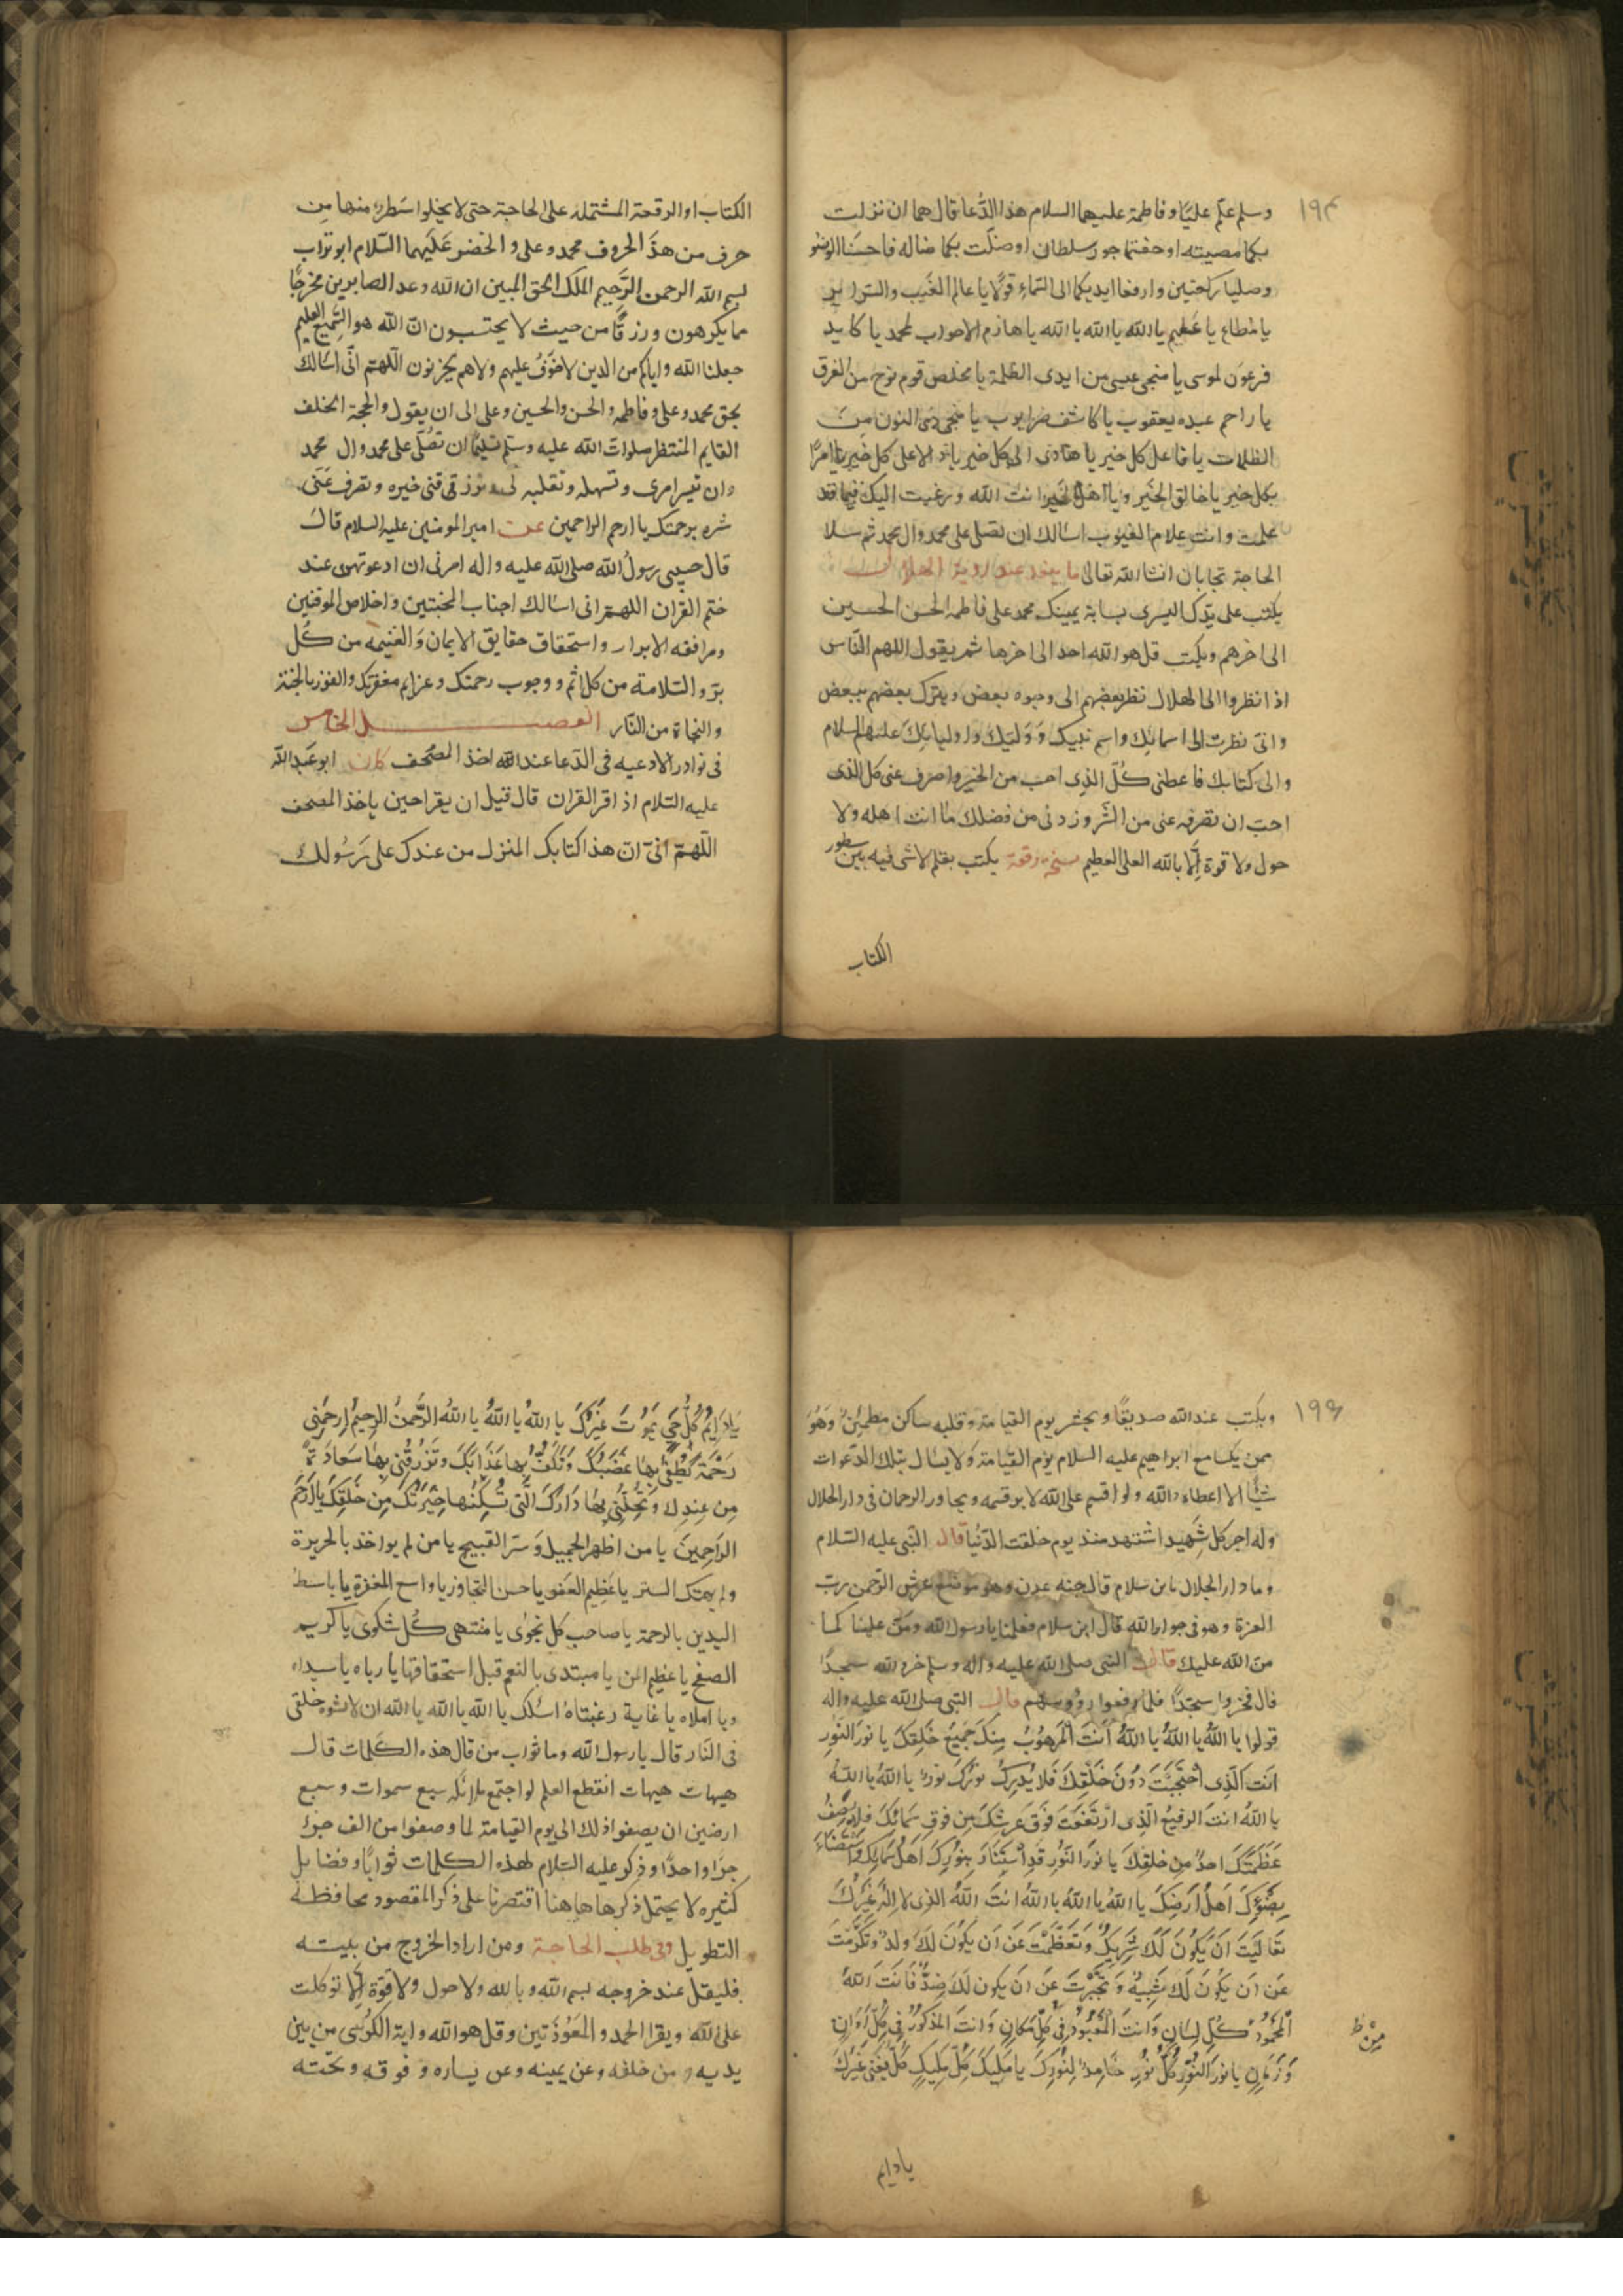 ١٩٤
وسلم علم عليا وفاطمة عليهما السلام هذا الدعا قال هما ان نزلت
بكما مصيبته او خفتما جور سلطان او ضلت بكما ضاله فاحسنا الوضو
وصليا ركعتين وارفعا ايديكما الى السماء قولا يا عالم الغيب والسراير
يا مطاع يا عظيم يا الله يا الله يا الله يا هازم الاحزاب لمحمد يا كايد
فرعون لموسى يا منجى عيسى من ايدى الظلمة يا مخلص قوم نوح من الغرق
يا راحم عبده يعقوب يا كاشف ضر ايوب يا منجى ذى النون من
الظلمات يا فاعل كل خير يا هادى الى كل خير يا دالا على كل خير يا امرا
بكل خير يا خالق الخير ويا اهل الخير انت الله ورغبت اليك فيما قد
علمت وانت علام الغيوب اسالك ان تصلى على محمد وال محمد ثم سلا
الحاجة تجابان انشا الله تعالى عند روية الهلال
يكتب على يدك اليسرى بسبابة يمينك محمد على فاطمه الحسن الحسين
الى اخرهم ويكتب قل هو الله احد الى اخرها ثم يقول اللهم الناس
اذا نظروا الى الهلال نظر بعضهم الى وجوه بعض ويترك بعضهم ببعض
وانى نظرت الى اسمائك واسم نبيك ووليك واوليائك عليهم السلام
والى كتابك فاعطنى كل الذى احب من الخير واصرف عنى كل الذى
احب ان تصرفه عنى من الشر وزدنى من فضلك ما انت اهله ولا
حول ولا قوة الا بالله العلى العظيم نسخه رقعة يكتب بقلم لاشى فيه بين سطور
الكتاب
الكتاب او الرقعة المشتملة على الحاجة حتى لا يخلوا سطر منها من
حرف من هذ الحروف محمد وعلى والخضر عليهما السلام ابو تراب
بسم الله الرحمن الرحيم الملك الحق المبين ان الله وعد الصابرين مخرجا
مما يكرهون ورزقا من حيث لا يحتسبون ان الله هو السميع العليم
جعلنا الله واياكم من الذين لا خوف عليهم ولا هم يحزنون اللهم انى اسالك
بحق محمد وعلى وفاطمه والحسن والحسين وعلى الى ان يقول والحجة الخلف
القايم المنتظر صلوات الله عليه وسلم تسليما ان تصلى على محمد وال محمد
وان تيسر امرى وتسهله وتغلبه لى وترزقنى خيره وتصرف عنى
شره برحمتك يا ارحم الراحمين عن امير المومنين عليه السلام قال
قال حبيبى رسول الله صلى الله عليه واله امرنى ان ادعو بهن عند
ختم القران اللهم انى اسالك اخبات المخبتين واخلاص الموقنين
ومرافقه الابرار واستحقاق حقايق الايمان والغنيمه من كل
بر والسلامة من كل اثم ووجوب رحمتك وعزايم مغفرتك والفوز بالجنة
والنجاة من النار الفصل الخامس
فى نوادر الادعيه فى الدعا عند الله اخذ المصحف كان ابو عبد الله
عليه السلام اذ اقرا القران قال قبل ان يقرا حين ياخذ المصحف
اللهم انى ان هذا كتابك المنزل من عندك على رسولك
١٩٩
ويكتب عند الله صديقا ويحشر يوم القيامة وقلبه ساكن مطمئن وهو
ممن يكسا مع ابراهيم عليه السلام يوم القيامة ولا يسال بتلك الدعوات
شيا الا اعطاه الله ولو اقسم على الله لا بر قسمه ويجاور الرحمان فى دار الجلال
وله اجر كل شهيد استشهد منذ يوم خلقت الدنيا قال النبى عليه السلام
وما دار الجلال يا بن سلام قال جنه عدن وهو موضع عرش الرحمن رب
العزة وهو فى جوار الله قال ابن سلام فعلمنا يا رسول الله ومن علينا كما
من الله عليك قال النبى صلى الله عليه واله وسلم خروا لله سجدا
قال فخروا سجدا فلما رفعوا رووسهم قال النبى صلى الله عليه واله
قولوا يا الله يا الله يا الله انت المرهوب منك جميع خلقك يا نور النور
انت الذى احتجبت دون خلقك فلا يدرك نورك نور يا الله يا الله
يا الله انت الرفيع الذى ارتفعت فوق عرشك من فوق سمائك فلا يصف
عظمتك احد من خلقك يا نور النور قد استنار بنورك اهل سمائك واستضاء
بضوئك اهل ارضك يا الله يا الله يا الله انت الله الذى لا اله غيرك
تعاليت ان يكون لك شريك وتعظمت عن ان يكون لك ولد وتكرمت
عن ان يكون لك شبيه وتجبرت عن ان يكون لك ضد فانت الله
المحمود كل لسان وانت المعبود فى كل مكان وانت المذكور فى كل اوان
من ظ
وزمان يا نور النور كل نور خامد لنورك يا مليك كل مليك كل يفنى غيرك
يا دايم
يا دايم كل حي يموت غيرك يا الله يا الله يا الله الرحمن الرحيم ارحمنى
رحمة تطفى بها غضبك وتكف بها عذابك وترزقنى بها سعادة
من عندك وتحلنى بها دارك التى تسكنها خيرتك من خلقك يا ارحم
الراحمين يا من اظهر الجميل وستر القبيح يا من لم يواخذ بالجريرة
ولم يهتك الستر يا عظيم العفو يا حسن التجاوز يا واسع المغفرة يا باسط
اليدين بالرحمة يا صاحب كل نجوى يا منتهى كل شكوى يا كريم
الصفح يا عظيم المن يا مبتدى بالنعم قبل استحقاقها يا رباه يا سيداه
ويا املاه يا غاية رغبتاه اسئلك يا الله يا الله يا الله ان لا تشوه خلقى
فى النار قال يا رسول الله وما ثواب من قال هذه الكلمات قال
هيهات هيهات انقطع العلم لو اجتمع ملائكه سبع سموات وسبع
ارضين ان يصفوا ذلك الى يوم القيامة لما وصفوا من الف جزء
جزا واحدا وذكر عليه السلام لهذه الكلمات ثوابا وفضايل
كثيره لا يحتمل ذكرها هاهنا اقتصرنا على ذكر المقصود مخافظة
التطويل فى طلب الحاجة ومن اراد الخروج من بيته
فليقل عند خروجه بسم الله وبالله ولا حول ولا قوة الا توكلت
على الله ويقرا الحمد والمعوذتين وقل هو الله واية الكرسى من بين
يديه ومن خلفه وعن يمينه وعن يساره وفوقه وتحته